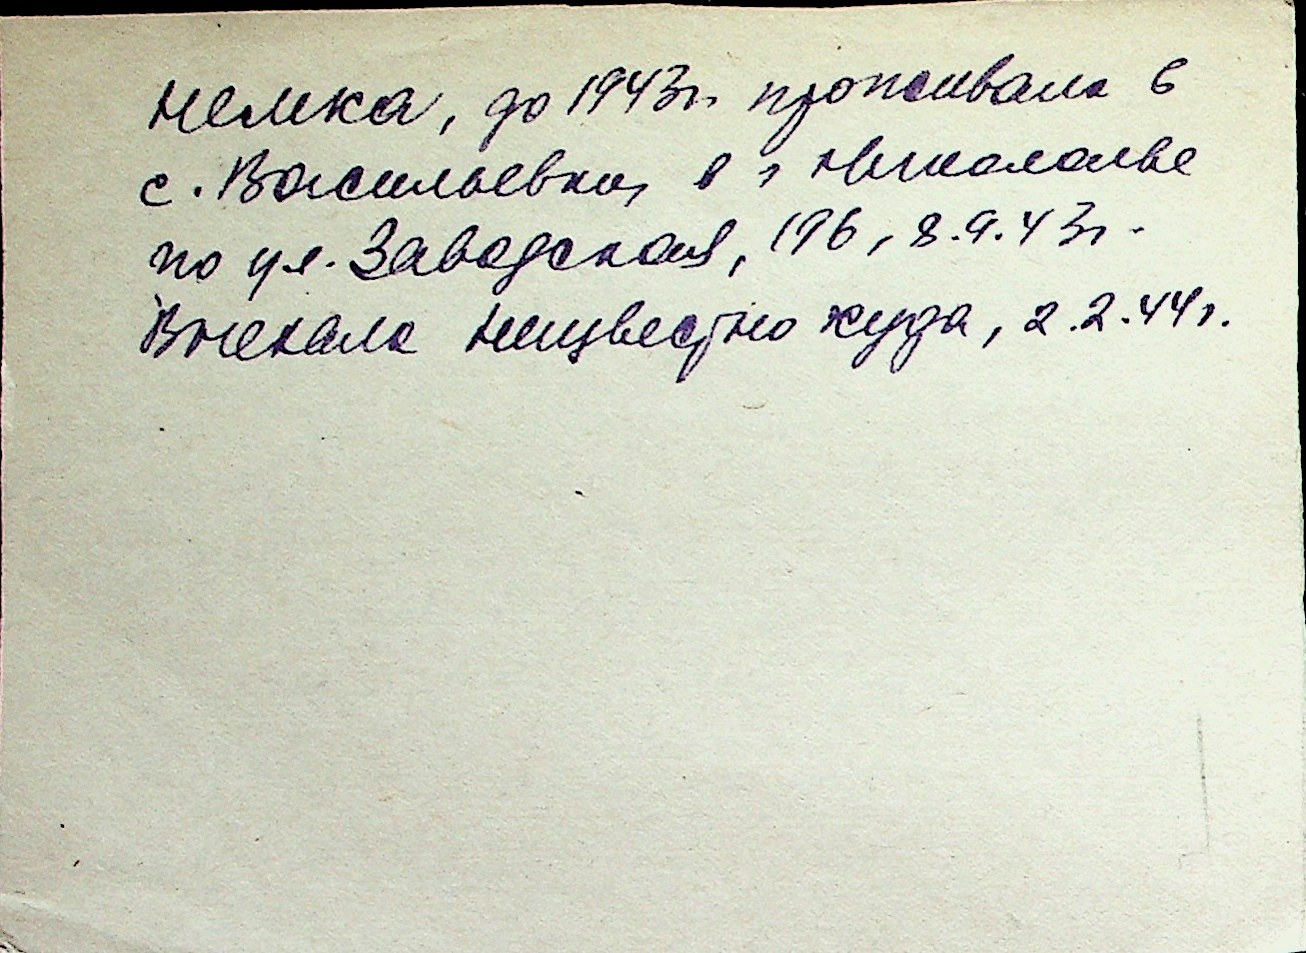 немка, до 1943г. проживала в
с. Васильевка, в г. Николаеве
по ул. Заводская, 176, 8.9.43г.
Выехала неизвестно куда, 2.2.44г.